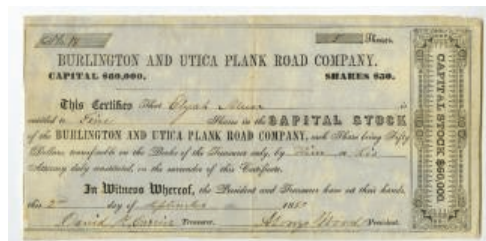 5 Shares.
BURLINGTON AND UTICA PLANK ROAD COMPANY.
CAPITAL $60,000. SHARES $50.
This Certifies That Elijah is
entitled to Five Shares in the CAPITAL STOCK
of the BURLINGTON AND UTICA PLANK ROAD COMPANY, each Share being Fifty
Dollars, transferable on the Books of the Treasurer only, by Him or His
Attorney duly constituted, on the surrender of this Certificate.
In Witness Whereof, the President and Treasurer have set their hands,
this 2nd day of September 185
David Treasurer. George Wood President.
CAPITAL STOCK $60,000.